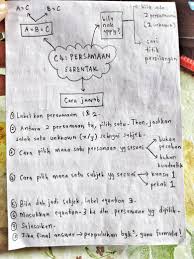 A=C
B=C
A=B=C
bila
nak
apply?
bila ada
2 persamaan
(2 unknown)
cari
titik
persilangan
C4: PERSAMAAN
SERENTAK
Cara jawab
① Label kan persamaan 1 & 2
② Antara 2 persamaan tu, pilih satu. Then, jadikan
salah satu unknown (x/y) sebagai subjek.
③ Cara pilih mana satu persamaan yg sesuai
bukan
pecahan
bukan
④ Cara pilih mana satu subjek yg sesuai
kuasa 1
pekali 1
⑤ Bila dah jadi subjek, label equation 3.
⑥ Masukkan equation 3 ke dlm persamaan yg dipilih.
⑦ Selesaikan.
⑧ Jika final answer → perpuluhan guna formula!